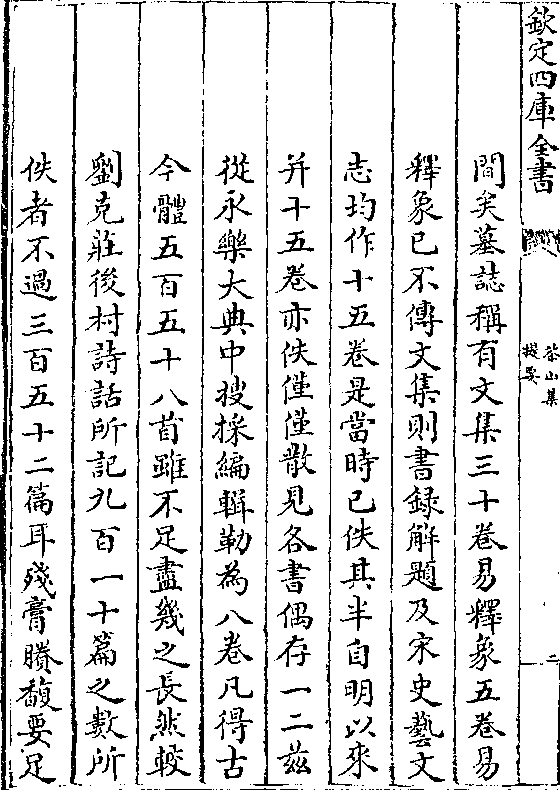 欽定四庫全書
提要
二
間矣墓誌稱有文集三十卷易釋象五卷易
釋象已不傳文集則書錄解題及宋史藝文
志均作十五卷是當時已佚其半自明以來
并十五卷亦佚僅僅散見各書偶存一二茲
從永樂大典中搜採編輯勒為八卷凡得古
今體五百五十八首雖不足盡幾之長然較
劉克莊後村詩話所記九百一十篇之數所
佚者不過三百五十二篇耳殘膏賸馥要足